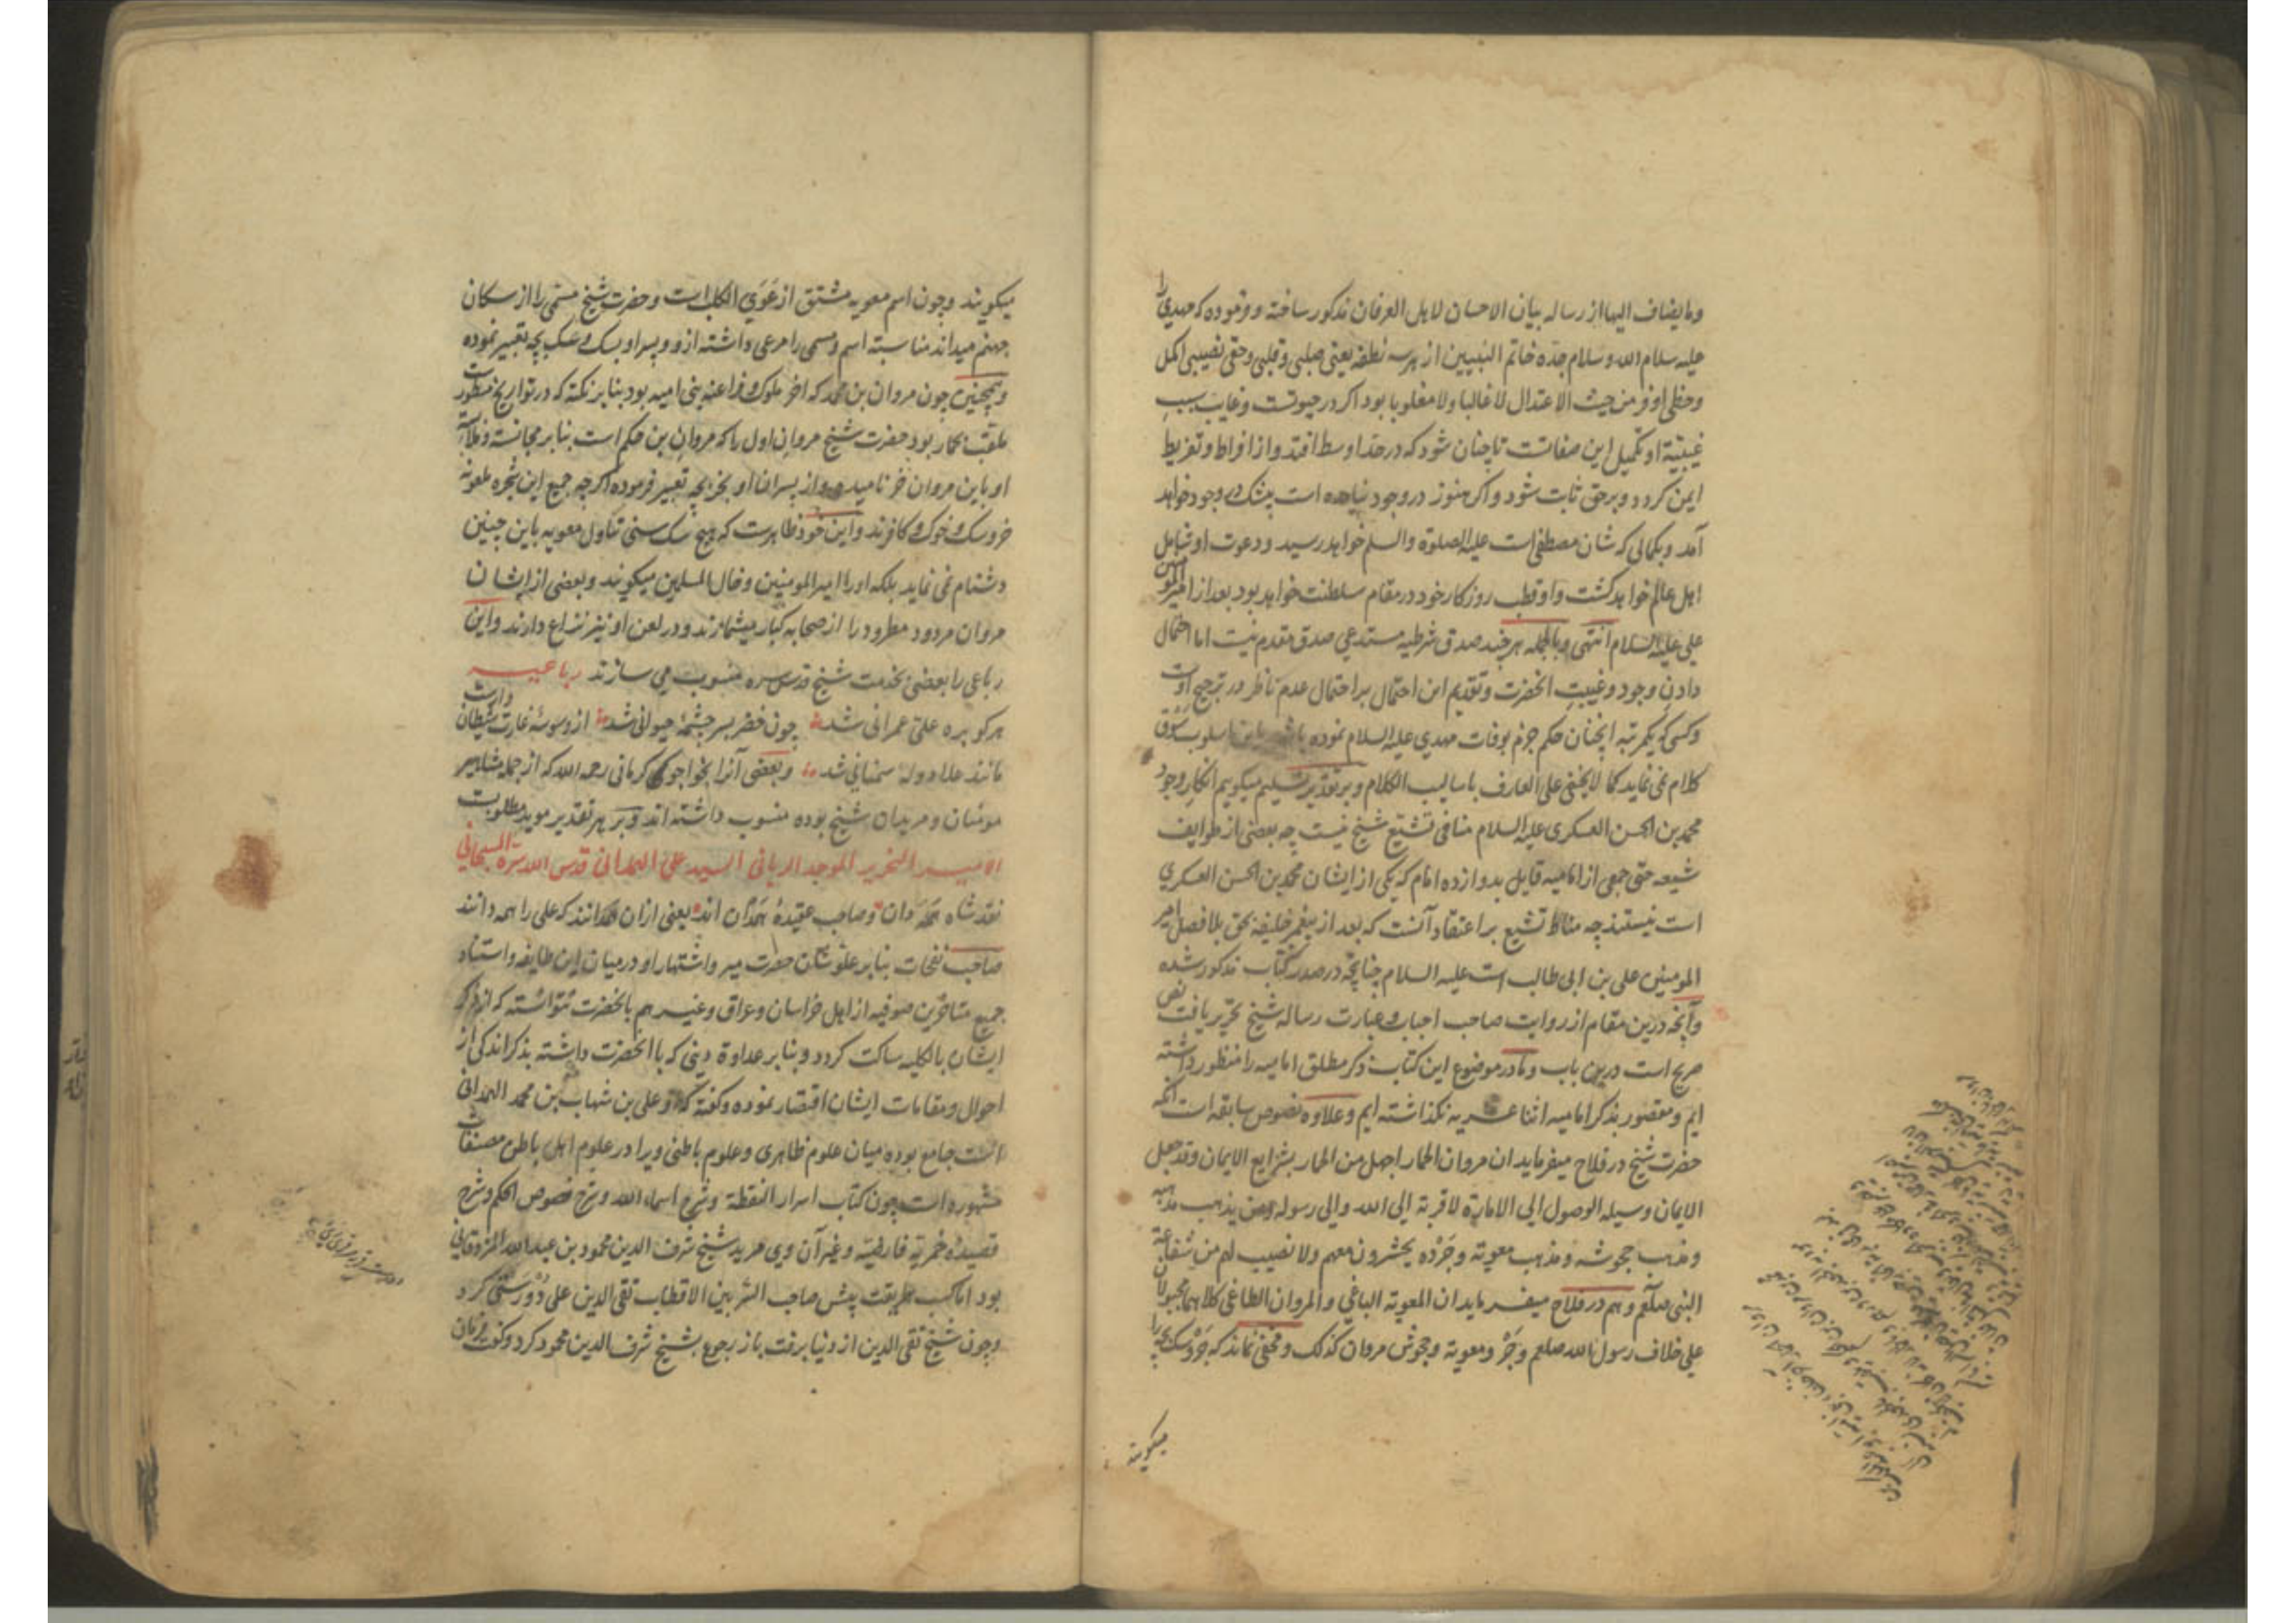 وما یضاف الیها از رساله بیان الاحسان لاهل العرفان مذکور ساخته و فرموده که مهدی را
علیه سلام الله و سلام جده خاتم النبیین از هر سه نطفه یعنی صلبی و قلبی و حقی نصیبی اکمل
و حظی اوفر من حیث الاعتدال لا غالبا ولا مغلوبا بود اکر در حیوتست و غایب سبب
غیبته او تکمیل این صفاتست تا چنان شود که در حد اوسط افتد و از افراط و تفریط
ایمن کردد و بر حق ثابت شود و اکر هنوز در وجود نیامده است بیشک در وجود خواهد
آمد و بکمالی که شان مصطفی است علیه الصلوة والسلم خواهد رسید و دعوت او شامل
اهل عالم خواهد کشت و او قطب روزکار خود در مقام سلطنت خواهد بود بعد از امیر المومنین
علی علیه السلام انتهی و بالجمله هر چند صدق شرطیه مستدعی صدق مقدم نیست اما احتمال
دادن وجود و غیبت انحضرت و تقدیم این احتمال بر احتمال عدم ناظر در ترجیح اوست
وکسی که یکمرتبه انچنان حکم جزم بوفات مهدی علیه السلام نموده باشد باین اسلوب سوق
کلام نمی نماید کما لا یخفی علی العارف باسالیب الکلام و بر تقدیر تسلیم میکوییم انکار وجود
محمد بن الحسن العسکری علیه السلام منافی تشیع شیخ نیست چه بعضی از طوایف
شیعه حتی جمعی از امامیه قایل بدوازده امام که یکی از ایشان محمد بن الحسن العسکری
است نیستند چه مناط تشیع بر اعتقاد آنست که بعد از پیغمبر خلیفه بحق بلا فصل امیر
المومنین علی بن ابی طالب است علیه السلام چنانچه در صدر کتاب مذکور شده
و آنچه درین مقام از روایت صاحب احباب و عبارت رساله شیخ تحریر یافت نص
صریح است درین باب و ما در موضوع این کتاب ذکر مطلق امامیه را منظور داشته
ایم و مقصور بذکر امامیه اثنا عشریه نکذاشته ایم و علاوه نصوص سابقه است آنکه
حضرت شیخ در فلاح میفرماید ان مروان الحمار اجهل من الحمار بشرایع الایمان وقد جعل
الایمان وسیله الوصول الی الامارة لا قربة الی الله والی رسوله ومن یذهب مذهبه
ومذهب جحوشه ومذهب معویة وجروه یحشرون معهم ولا نصیب لهم من شفاعة
النبی صلعم و هم در فلاح میفرماید ان المعویة الباغی والمروان الطاغی کلاهما مجبولان
علی خلاف رسول الله صلعم وجرو معویة وجحوش مروان کذلک و مخفی نماند که جرو سک بچه را
میکویند
میکویند و چون اسم معویه مشتق از عوی الکلب است و حضرت شیخ مسمی را از سکان
جهنم میداند مناسبة اسم و مسمی را مرعی داشته از و و پسر او بسک و سک بچه تعبیر نموده
و همچنین چون مروان بن محمد که اخر ملوک فراعنه بنی امیه بود بنا بر نکته که در تواریخ مسطور است
ملقب بحمار بود حضرت شیخ مروان اول را که مروان بن حکم است بنا بر مجانسة
او باین مروان خر نامیده و از پسران او بخر بچه تعبیر فرموده اکر چه جمیع این شجره ملعونه
خر و سک و خوک و کافرند و این خود ظاهرست که هیچ سک سنی تناول معویه باین چنین
دشنام نمی نماید بلکه او را امیر المومنین و خال المسلمین میکویند و بعضی از ایشان
مروان مردود مطرود را از صحابه کبار میشمارند و در لعن او نیز نزاع دارند و این
رباعی را بعضی بخدمت شیخ قدس سره منسوب می سازند رباعیه
هر کو بره علی عمرانی شد چون خضر بسر چشمه حیوانی شد از وسوسه غارت شیطان وارست
مانند علا دوله سمنانی شد و بعضی آنرا بخواجوی کرمانی رحمه الله که از جمله مشاهیر
مونسان و مریدان شیخ بوده منسوب داشته اند و بر هر تقدیر موید مطلوبست
الامیر النحریر الموحد الربانی السید علی الهمدانی قدس الله سره السبحانی
نقد شاه همه دان و صاحب عقیده همدان اند یعنی ازان همدانند که علی را همه دانند
صاحب نفحات بنا بر علو شان حضرت میر و اشتهار او در میان این طایفه و استناد
جمیع متاخرین صوفیه از اهل خراسان و عراق و غیرهم بانحضرت نتوانسته که از ذکر
ایشان بالکلیه ساکت کردد و بنا بر عداوة دینی که با انحضرت داشته بذکر اندکی از
احوال و مقامات ایشان اقتصار نموده و کفته که علی بن شهاب بن محمد الهمدانی
است جامع بوده میان علوم ظاهری و علوم باطنی ویرا در علوم اهل باطن مصنفات
مشهوره است چون کتاب اسرار النقطه و شرح اسماء الله و شرح فصوص الحکم و شرح
قصیده خمریه فارضیه و غیر آن وی مرید شیخ شرف الدین محمود بن عبد الله المزدقانی
بود اما کسب طریقت پیش صاحب السر بین الاقطاب تقی الدین علی دوستی کرد
و چون شیخ تقی الدین از دنیا برفت باز رجوع بشیخ شرف الدین محمود کرد و کفت فرمان